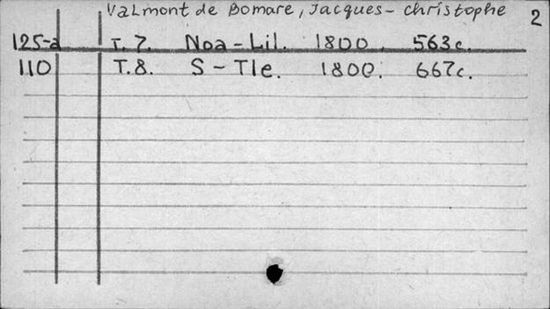 Valmont de Bomare, Jacques-Christophe 2
125-a T. 7. Noa-Lil. 1800. 563c.
110 T.8. S-Tle. 1800. 667c.